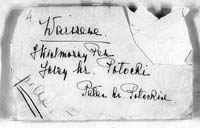 4
Warszawa.
JWielmożny Pan
Jerzy hr. Potocki
hr. Potockich